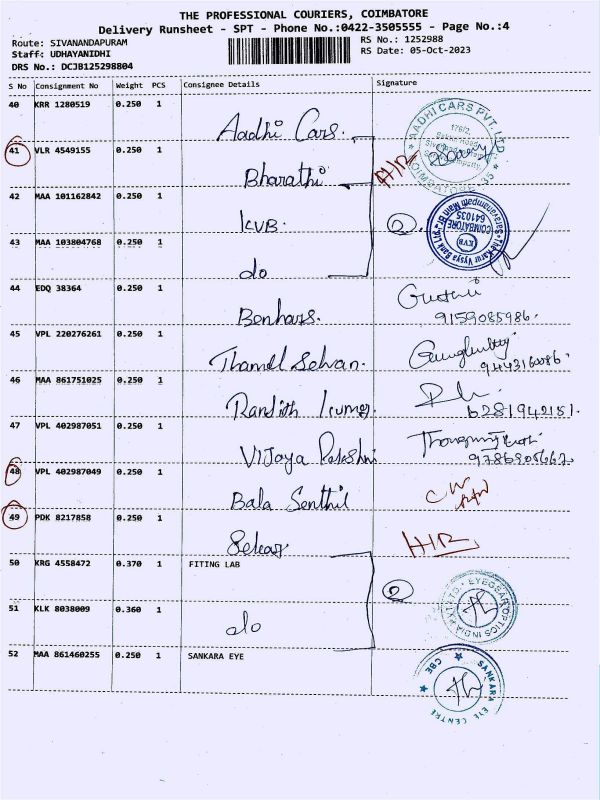 THE PROFESSIONAL COURIERS, COIMBATORE
Delivery Runsheet - SPT - Phone No.:0422-3505555 - Page No.:4
Route: SIVANANDAPURAM
RS No.: 1252988
Staff: UDHAYANIDHI
RS Date: 05-Oct-2023
DRS No.: DCJB125298804
S No Consignment No Weight PCS Consignee Details Signature
40 KRR 1280519 0.250 1 Aadhi Cars.
AADHI CARS PVT. LTD. COIMBATORE - 35
41 VLR 4549155 0.250 1 Bharathi H/R
42 MAA 101162842 0.250 1 KVB. 2
The Karur Vysya Bank Ltd. COIMBATORE 641035 KVB
43 MAA 103804768 0.250 1 do
44 EDQ 38364 0.250 1 Benhars.
9159085986.
45 VPL 220276261 0.250 1 Thamil Selvan.
9443160086.
46 MAA 861751025 0.250 1 Randith Kumar.
6281942151.
47 VPL 402987051 0.250 1 Vijaya
48 VPL 402987049 0.250 1 Bala Senthil
49 PDK 8217858 0.250 1 H/R
50 KRG 4558472 0.370 1 FITING LAB 2
EYEGEAR OPTICS INDIA PVT LTD.
51 KLK 8038009 0.360 1 do
52 MAA 861460255 0.250 1 SANKARA EYE
SANKARA EYE CENTRE CBE